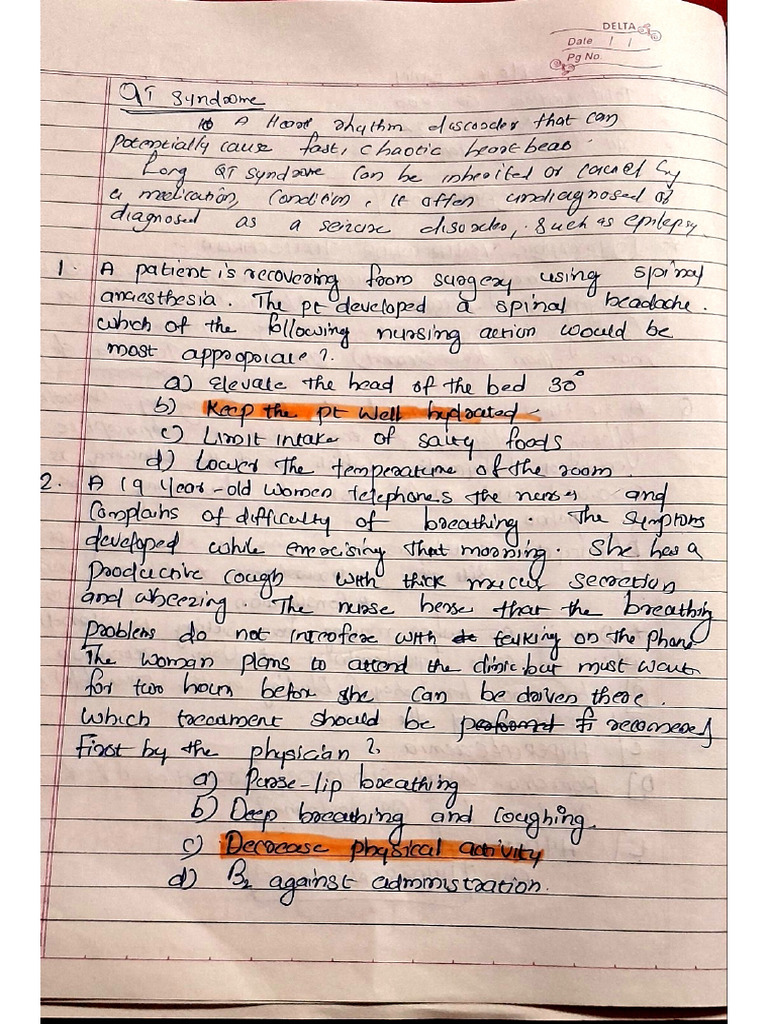 DELTA
Date / /
Pg No.
QT Syndrome
A Heart rhythm discorder that can
Potentially cause fast, chaotic heart beas
Long QT syndrome can be inherited or caused by
a medication, condition, it often undiagnosed of
diagnosed as a seizure disorder, such as epilepsy
1. A patient is recovering from surgery using spinal
anaesthesia. The pt developed a spinal headache.
which of the following nursing action would be
most appropriate?
a) Elevate the head of the bed 30°
b) Keep the pt well hydrated
c) Limit intake of salty foods
d) Lower the temperature of the room
2. A 19 year-old women telephones the nurses and
Complains of difficulty of breathing. The symptoms
developed while exercising that morning. She has a
productive cough with thick mucus secretion
and wheezing. The nurse hense that the breathing
problems do not interfere with talking on the phone
The woman plans to attend the clinic but must wait
for two hours before she can be driven there.
which treatment should be performed recomened
first by the physician?
a) Purse-lip breathing
b) Deep breathing and coughing
c) Decrease physical activity
d) B2 against administration.